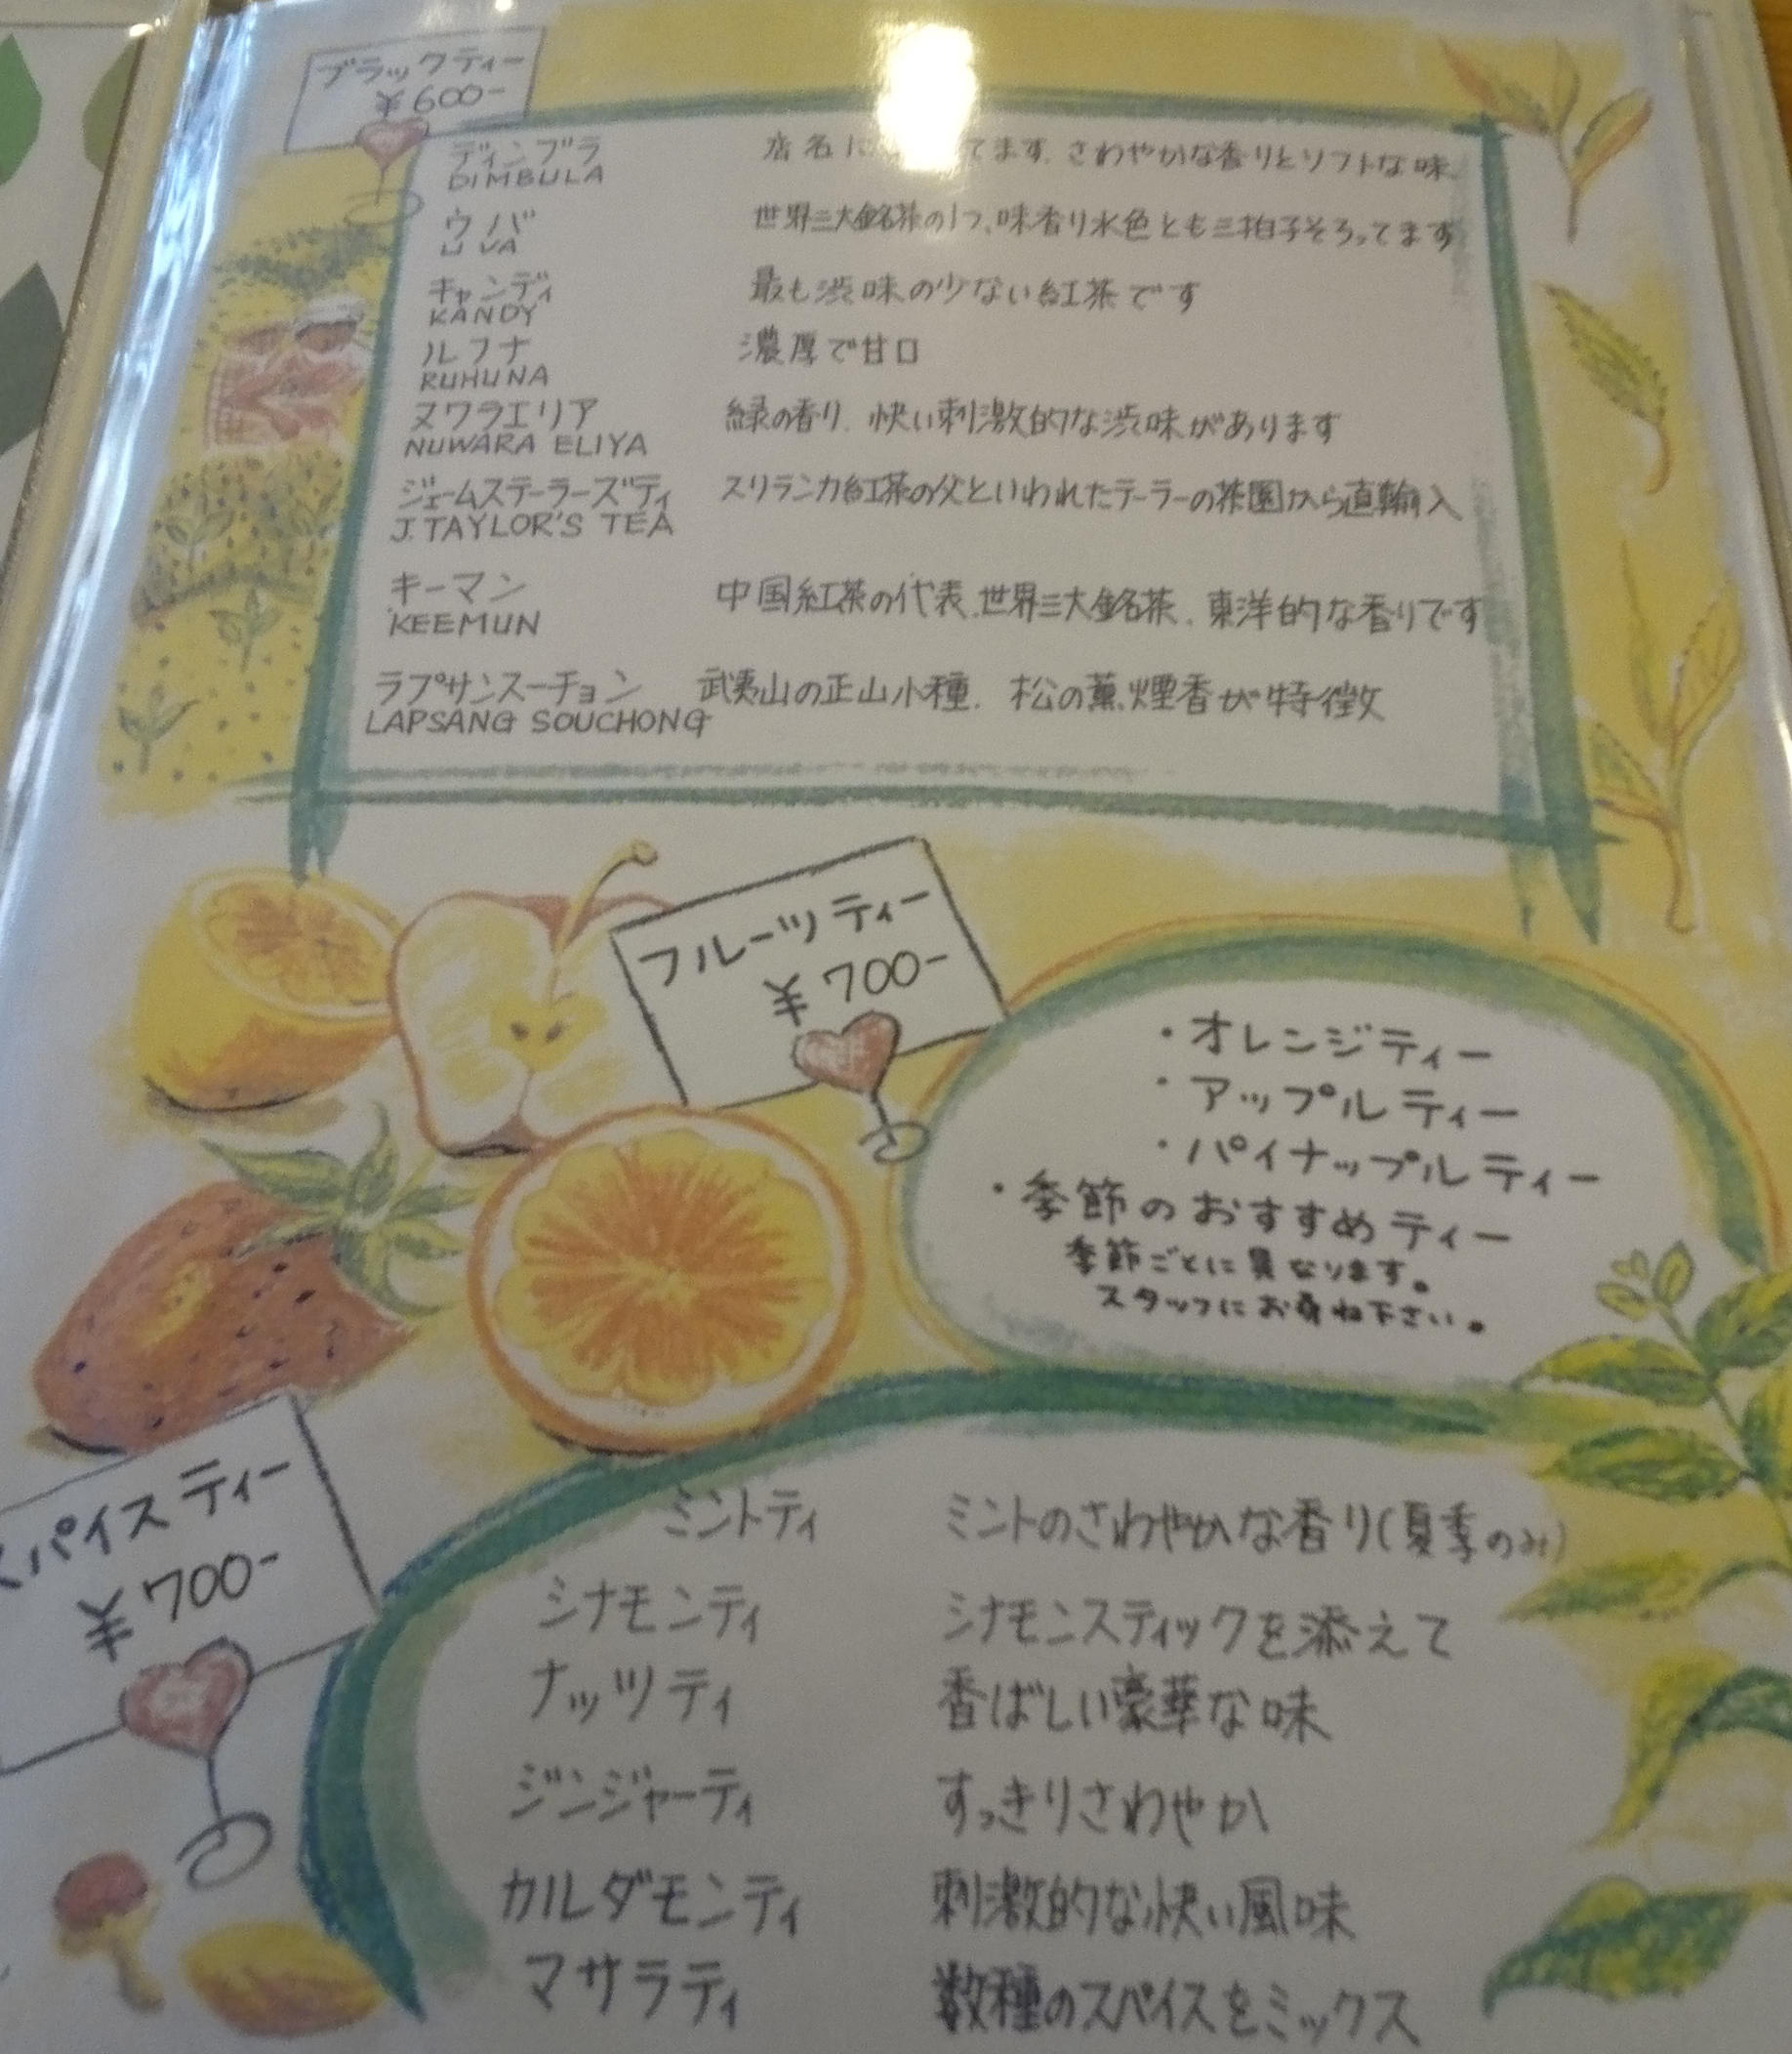 ブラックティー
¥600-
ディンブラ 店名に てます。さわやかな香りとソフトな味。
DIMBULA
ウバ 世界三大銘茶の1つ、味香り水色とも三拍子そろってます
UVA
キャンディ 最も渋味の少ない紅茶です
KANDY
ルフナ 濃厚で甘口
RUHUNA
ヌワラエリア 緑の香り、快い刺激的な渋味があります
NUWARA ELIYA
ジェームステーラーズティ スリランカ紅茶の父といわれたテーラーの茶園から直輸入
J.TAYLOR'S TEA
キーマン 中国紅茶の代表、世界三大銘茶、東洋的な香りです
KEEMUN
ラプサンスーチョン 武夷山の正山小種、松の薫煙香が特徴
LAPSANG SOUCHONG
フルーツティー
¥700-
・オレンジティー
・アップルティー
・パイナップルティー
・季節のおすすめティー
季節ごとに異なります。
スタッフにお尋ね下さい。
スパイスティー
¥700-
ミントティ ミントのさわやかな香り(夏季のみ)
シナモンティ シナモンスティックを添えて
ナッツティ 香ばしい豪華な味
ジンジャーティ すっきりさわやか
カルダモンティ 刺激的な快い風味
マサラティ 数種のスパイスをミックス